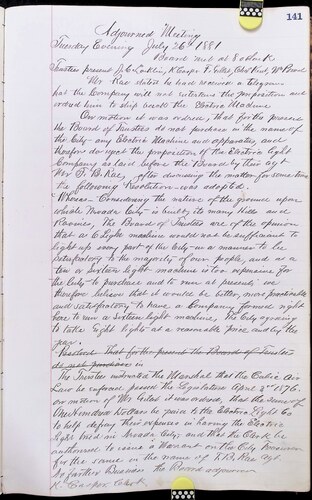 141
Adjourned Meeting
Tuesday Evening July 26th 1881
Board met at 8 oclock
Trustees present J. C. Conklin, K Casper, F. Gilles, Chas Kent, Wm Board
Mr Rae stated he had received a telegram
that the Company will not entertain the proposition and
ordered him to ship back the Electric Machine
On motion it was ordered, that for the present
the Board of Trustees do not purchase in the name of
the City any Electric Machine and apparatus, and
therefore do reject the proposition of the Electric Light
Company as laid before this Board by their agt
Mr T. B. Rae, after discussing the matter for some time
the following Resolution was adopted.
Whereas Considering the nature of the grounds upon
which Nevada City is built, its many Hills and
Ravines, The Board of Trustees are of the opinion
that a 6 Light machine would not be sufficient to
light up every part of the City in a manner to be
satisfactory to the majority of our people, and as a
ten or sixteen light machine is too expensive for
the City to purchase and to run at present we
therefore believe that it would be better, more practicable
and satisfactory to have a Company formed right
here to run a sixteen light machine, the City agreeing
to take Eight lights at a reasonable price and by the
year.
Resolved That for the present the Board of Trustees
do not purchase in
The Trustees instructed the Marshal that the Cubic Air
Law be enforced passed the Legislature April 3d 1876.
On motion of Mr Gilles it was ordered, that the sum of
One Hundred Dollars be paid to the Electric Light Co
to help defray their expenses in having the Electric
light tried in Nevada City, and that the Clerk be
authorized to issue a Warrant on the City Treasurer
for the same in the name of T. B. Rae Agt.
No further Business the Board adjourned
K. Casper Clerk